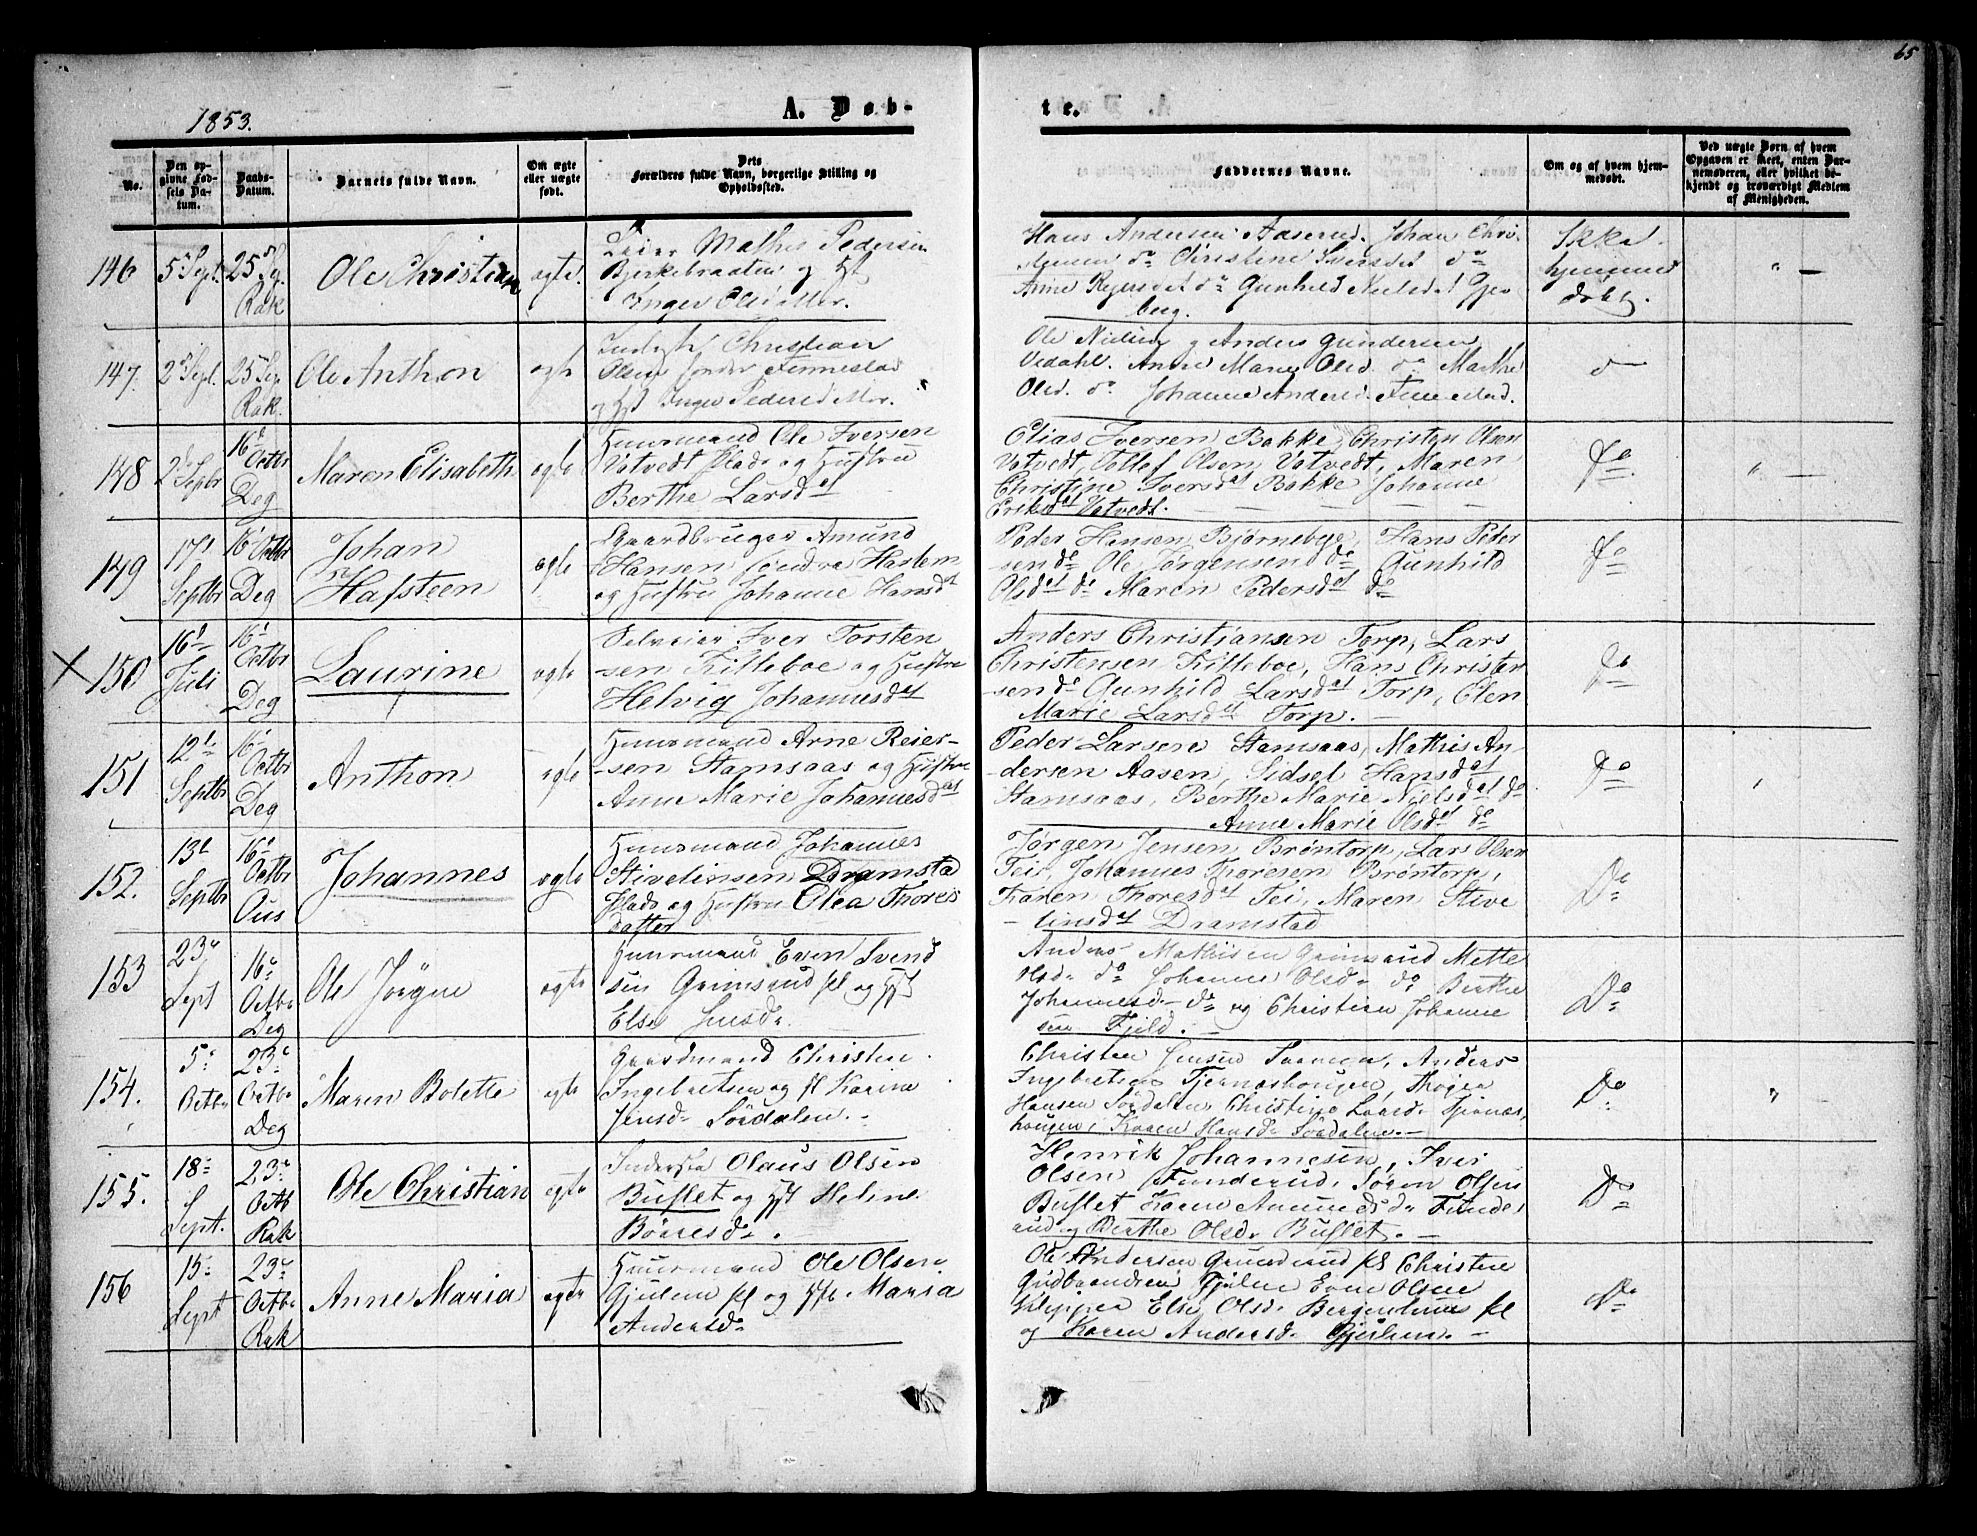 65
1853.
A. Døb-
te.
No.
Den opgivne Fødsels Datum.
Daabs-Datum.
Barnets fulde Navn.
Om ægte eller uægte født.
Dets Forældres fulde Navn, borgerlige Stilling og Opholdssted.
Faddernes Navne.
Om og af hvem hjemmedøbt.
Ved uægte Børn af hvem Opgaven er skeet, enten Barnemoderen, eller hvilket bekjendt og troværdigt Medlem af Menigheden.
146
5 Sept.
25 Sep
Rak
Ole Christian
ægte
Leier Mathis Pedersen
Bjerkebraaten og Hst
Inger Olsd Mor.
Hans Andersen Aaserud, Johan Chri-
stensen do Christine Iversdet do
Anne Reiersdet do Gunhild Nielsd
berg.
Ikke
hjemme
døbt
147.
2 Sept.
25 Sep
Rak.
Ole Anthon
ægte
Inderst Christian
Olsen søndre Finnestad
og Hst Inger Pedersd Mor.
Ole Nielsen og Anders Gundersen
Vedahl. Anne Marie Olsd. do Marthe
Olsd. do Johanne Andersd. Finnestad.
do
148
2d Septbr
16d Octbr
Deg
Maren Elisabeth
ægte
Huusmand Ole Iversen
Vatvedt Plads og Hustru
Berthe Larsdat
Elias Iversen Bakke, Christen Olsen
Vatvedt, Tollef Olsen Vatvedt, Maren
Christine Iversdat Bakke Johanne
Eriksdat Vatvedt.
Do
149
17d
Septbr
16 Octbr
Deg
Johan
Hafsteen
ægte
Gaardbruger Amund
Hansen søndre Harlem
og Hustru Johanne Hansdat
Peder Hansen Bjørnebye, Hans Peder
sen do Ole Jørgensen do Gunhild
Olsdat do Maren Pedersdat do
Do
150
16d
Juli
16d
Octbr
Deg
Laurine
ægte
Selveier Iver Torsten
sen Killeboe og Hustru
Helvig Johannesdat
Anders Christiansen Torp, Lars
Christensen Killeboe, Hans Christen
sen do Gunhild Larsdat Torp, Elen
Marie Larsdat Torp.
Do
151
12d
Septbr
16
Octbr
Deg
Anthon
ægte
Huusmand Arne Reier-
sen Stamsaas og Hustru
Anne Marie Johannesdat
Peder Larsen Stamsaas, Mathis An-
dersen Aasen, Sidsel Hansdat
Stamsaas, Berthe Marie Nielsdat do
Anne Marie Olsdat do
Do
152.
13d
Septbr
16d
Octbr
Ous
Johannes
ægte
Huusmand Johannes
Stivelinsen Dramstad
Plads og Hustru Olea Thores
datter
Jørgen Jensen Brøntorp, Lars Olsen
Tei, Johannes Thoresen Brøntorp,
Karen Thoresdat Tei, Maren Stive
linsdat Dramstad
Do
153
23
Sept
16
Octbr
Deg
Ole Jørgen
ægte
Huusmand Even Svend
sen Grimsrud pl og Hst
Else Jensd.
Anders Mathisen Grimsrud Mette
Olsd. do Johanne Olsd. do Berthe
Johannesd. do og Christian Johanne
sen Fjeld.
Do
154.
5
Octbr
23
Octbr
Deg
Maren Bolette
ægte
Gaardmand Christen
Ingebretsen og Karine
Jensd. Sørdalen.
Christen Jensen Anders
Ingebretsen Tjernæshougen,
Hansen Sørdalen Christine Tjernæs-
hougen, Karen Hansd. Sørdalen.
Do
155.
18
Sept.
23
Octb
Rak
Ole Christian
ægte
Inderste Olaus Olsen
Buflet og Hst Heline
Børresd.
Henrik Johannesen, Iver
Olsen Funderud, Søren Olsen
Buflet Karen Amundsd. Funde-
rud og Berthe Olsd. Buflet.
Do
156
15
Sept
23
Octbr
Rak
Anne Maria
ægte
Huusmand Ole Olsen
Gjulem pl og Hst Maria
Andersd.
Ole Andersen pl Christen
Gudbrandsen Even Olsen
Else Olsd. pl
og Karen Andersd.
Do